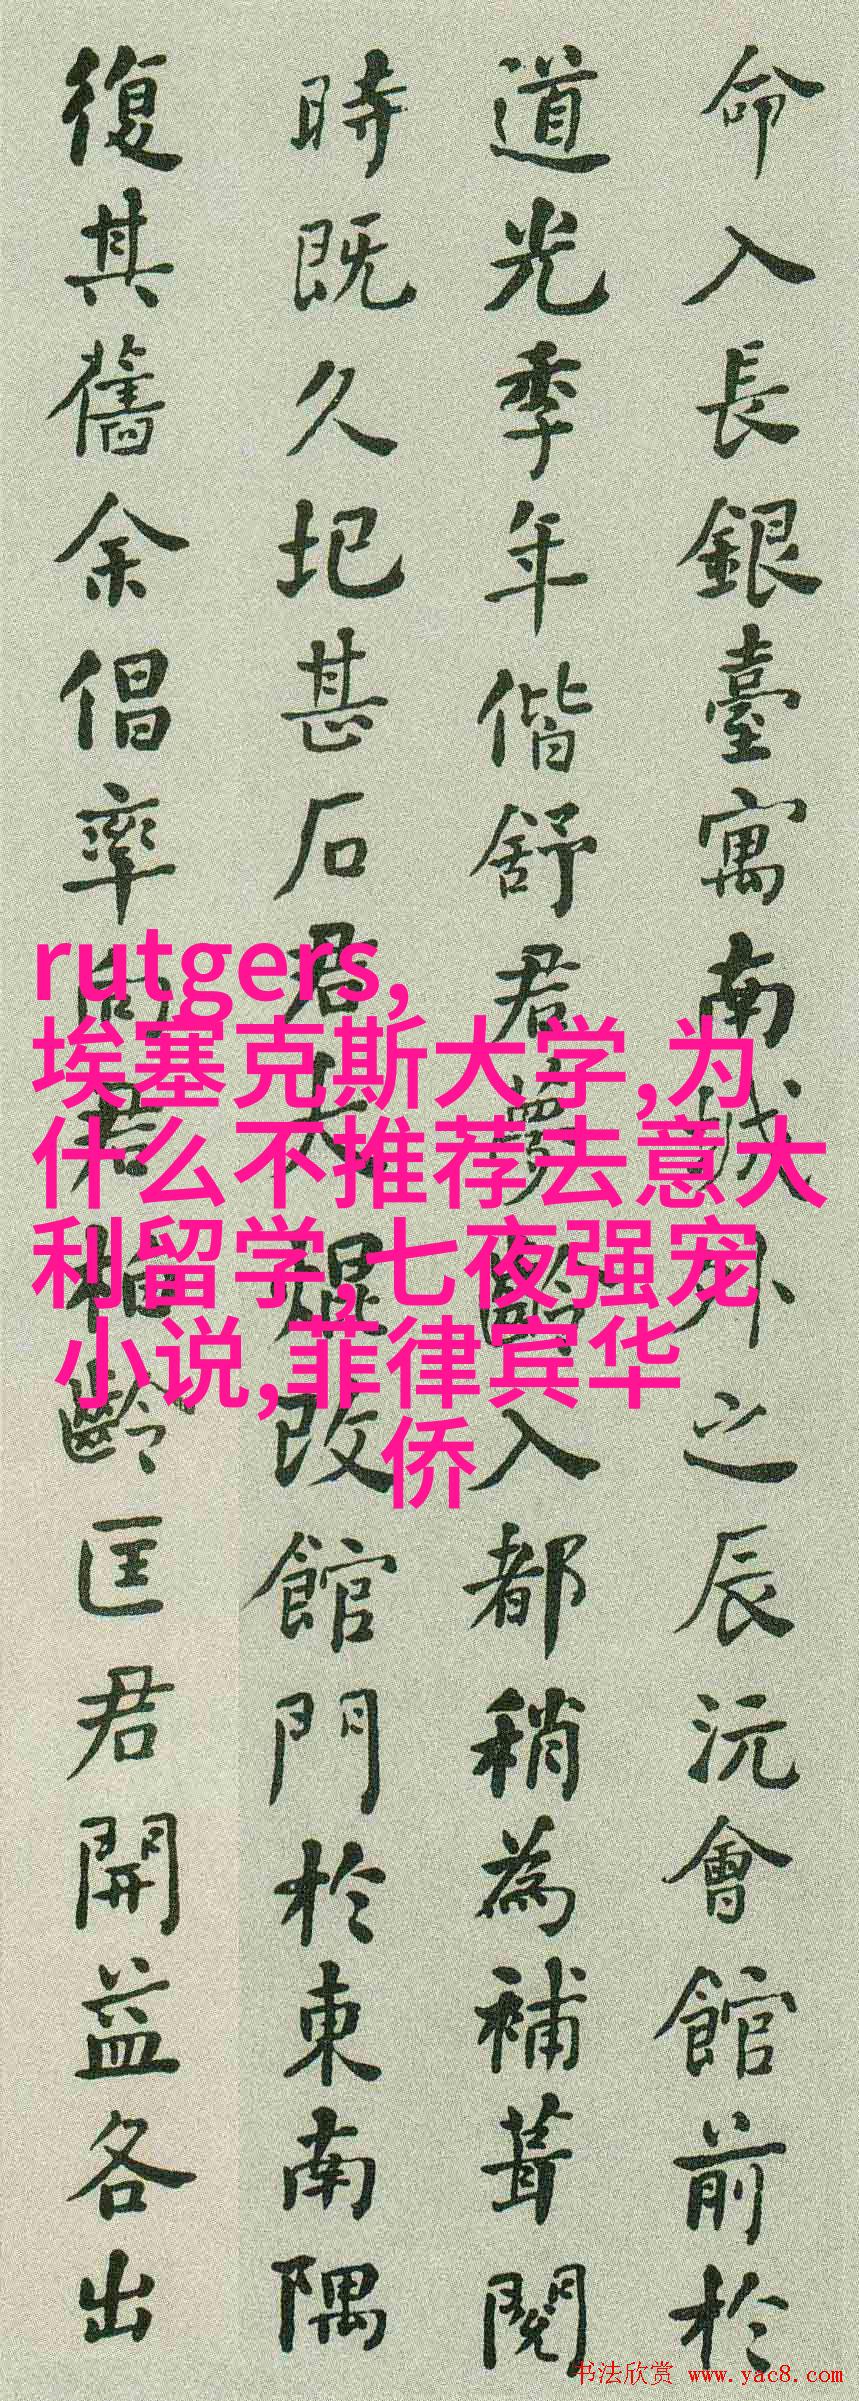 命入長銀臺寓南城外之辰沅會館前於
道光季年偕舒君夢齡入都稍為補葺閱
時既久圮甚石君大焜改館門於東南隅
復其舊余倡率向君柏齡匡君開益各出
rutgers,
埃塞克斯大学,为
什么不推荐去意大
利留学,七夜强宠
小说,菲律宾华
侨
书法欣赏 www.yac8.com